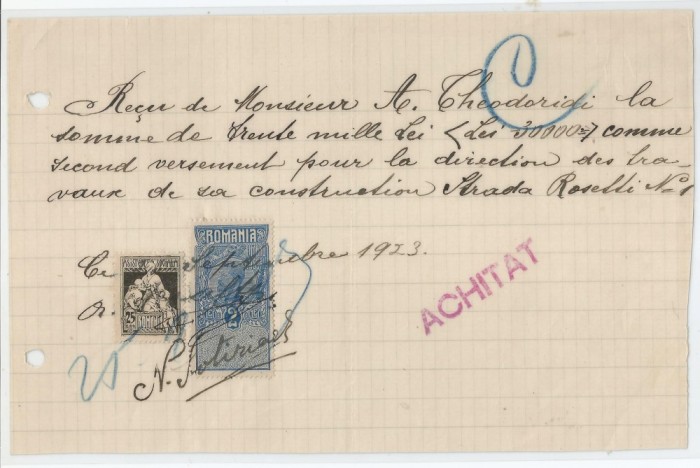 C
Reçu de Monsieur A. Theodoridi la
somme de trente mille Lei (Lei 30000=) comme
second versement pour la direction des tra-
vaux de sa construction Strada Rosetti No 1
ROMANIA
Ce Septembre 1923.
25
2
ACHITAT
N. Sotiriadi